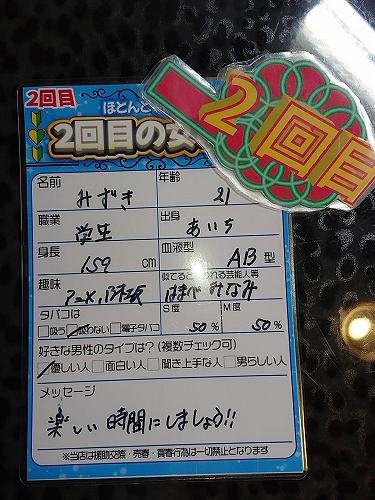 2回目
ほとんど
2回目の女
2回目
名前 みずき 年齢 21
職業 学生 出身 あいち
身長 159 cm 血液型 AB 型
趣味 アニメ, 似てると れる芸能人等 はまべ みなみ
タバコは S度 M度
吸う 吸わない 電子タバコ 50% 50%
好きな男性のタイプは?(複数チェック可)
優しい人 面白い人 聞き上手な人 男らしい人
メッセージ
楽しい時間にしましょう!!
※当店は援助交際・売春・買春行為は一切禁止となります